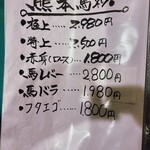 熊本馬刺
・極上……2.980円
・特上……2.500円
・赤身(ロース)…1.800円
・馬レバー…2800円
・馬バラ…1.980円
・フタエゴ…1800円